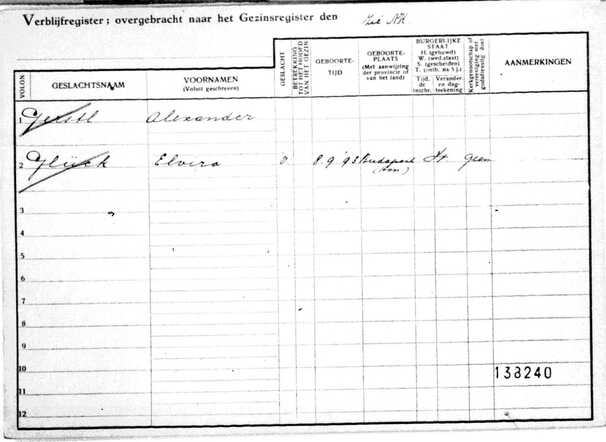 Verblijfregister; overgebracht naar het Gezinsregister den
VOLGN.
GESLACHTSNAAM
VOORNAMEN
(Voluit geschreven)
GESLACHT
BETREKKING
TOT HET HOOFD
VAN HET GEZIN
GEBOORTE-
TIJD
GEBOORTE-
PLAATS
(Met aanwijzing
der provincie of
van het land)
BURGERLIJKE
STAAT
H. (gehuwd)
W. (wed.staat)
S. (gescheiden)
T.
Tijd.
de
inschr.
Verander-
en dag-
teekening
Kerkgenootschap of
vereeniging met
godsdienstig doel
AANMERKINGEN
1 Gerstl Alexander
2 Glück Elvira 8.9.'93 Budapest H. geen
3
4
5
6
7
8
9
10
138240
11
12